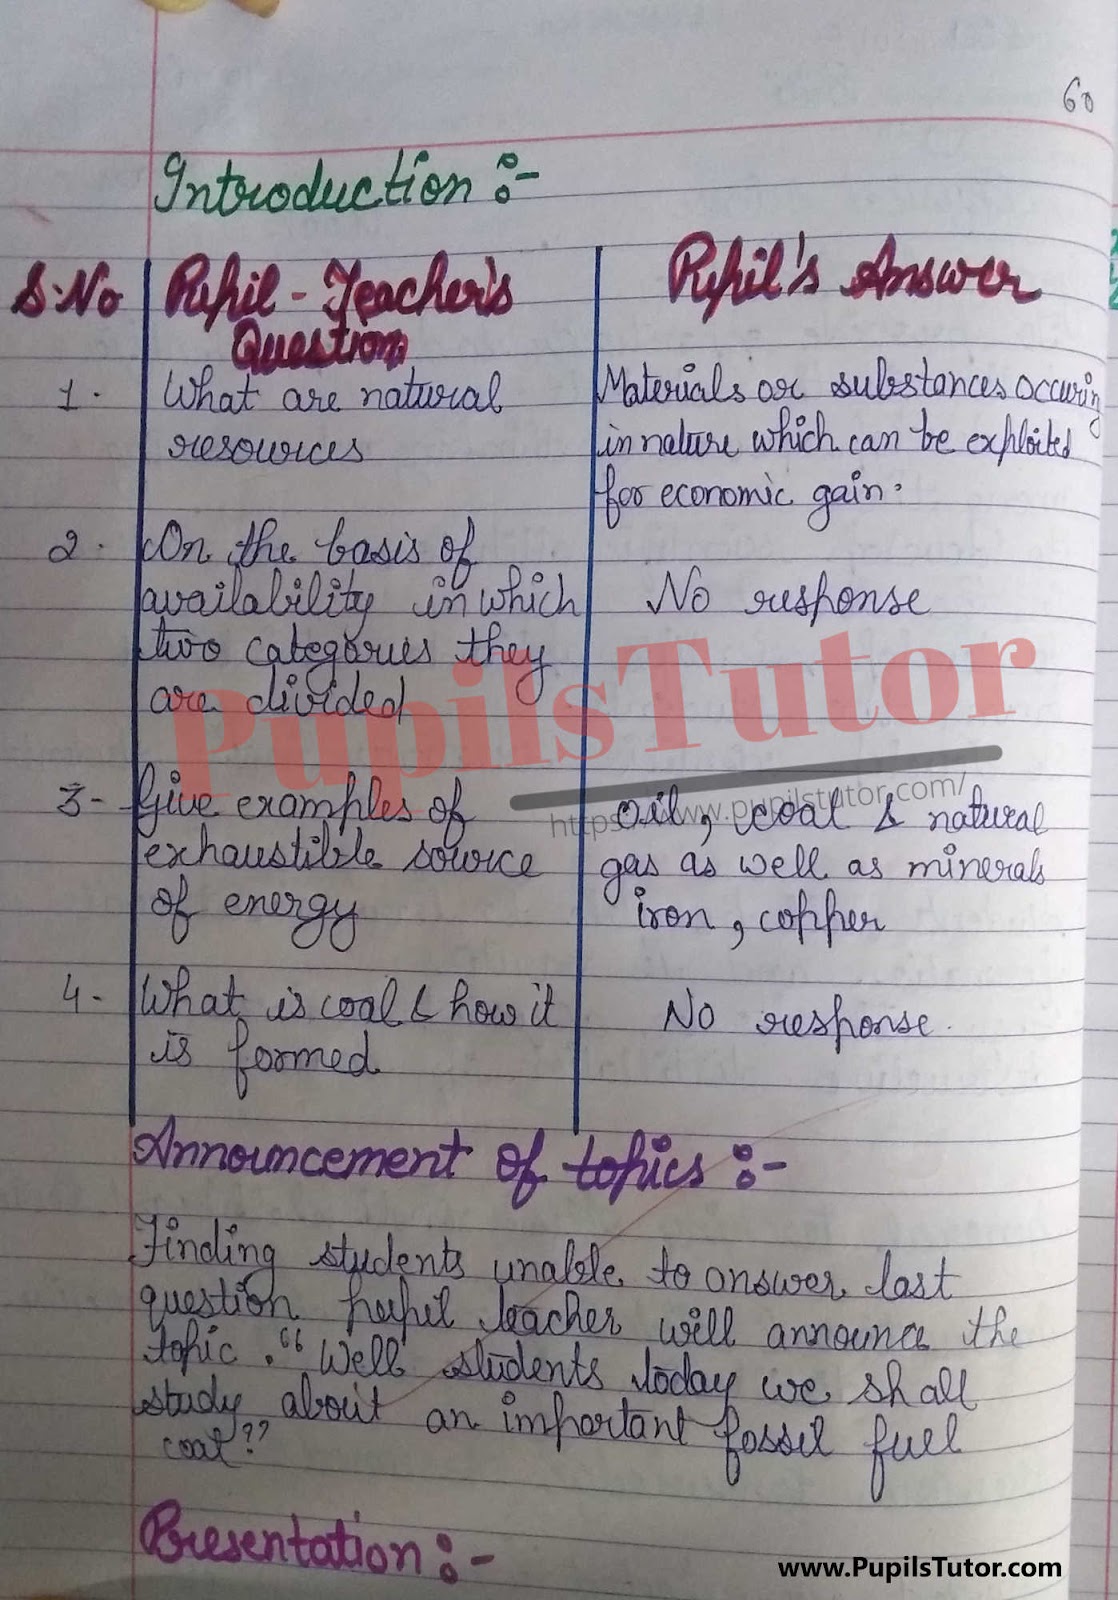 60
Introduction :-
S.No Pupil-Teacher's Question Pupil's Answer
1. What are natural resources
Materials or substances occuring
in nature which can be exploited
for economic gain.
2. On the basis of
availability in which
two categories they
are divided
No response
3- Give examples of
exhaustible source
of energy
oil, coal & natural
gas as well as minerals
iron, copper
4- What is coal & how it
is formed
No response.
Announcement of topics :-
Finding students unable to answer last
question pupil teacher will announce the
topic. "Well students today we shall
study about an important fossil fuel
coal"
Presentation :-
PupilsTutor
https://www.pupilstutor.com/
www.PupilsTutor.com